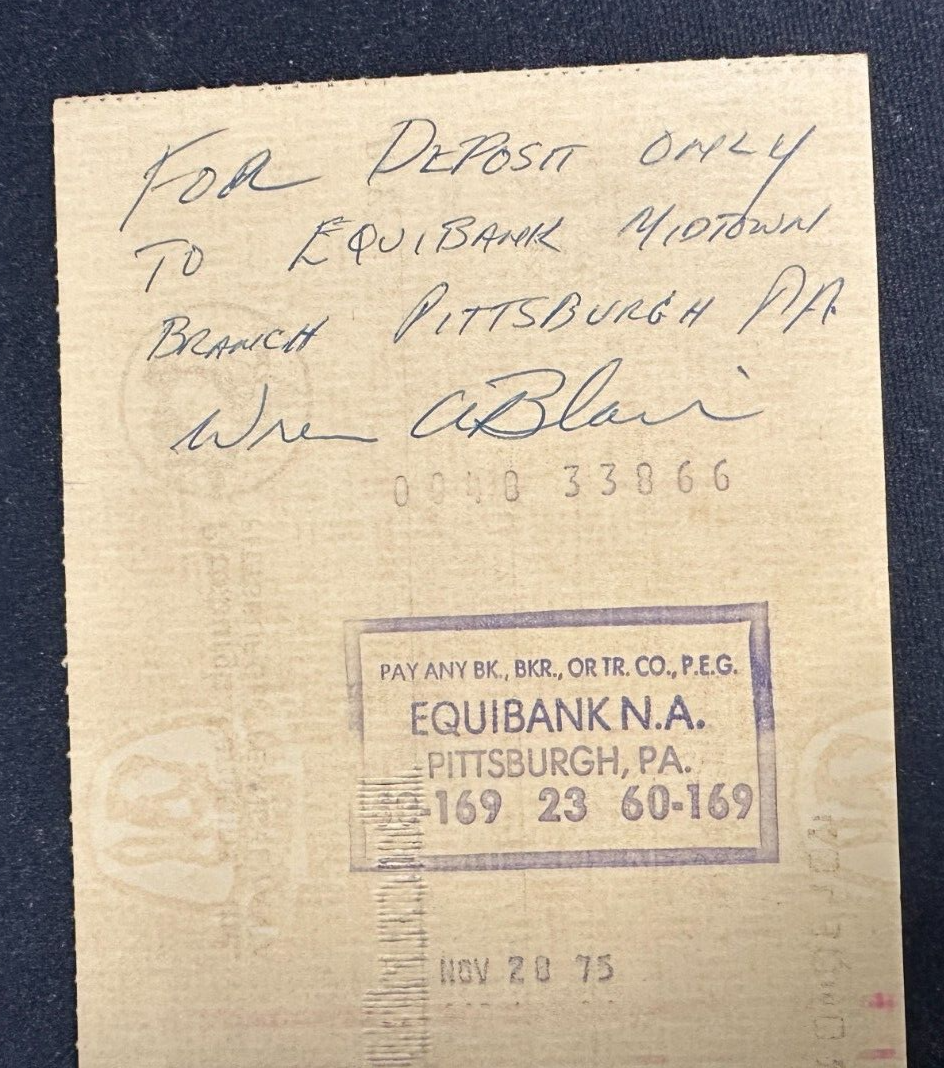 FOR DEPOSIT ONLY
TO EQUIBANK MIDTOWN
BRANCH PITTSBURGH PA.
Wren A Blair
33866
PAY ANY BK., BKR., OR TR. CO., P.E.G.
EQUIBANK N.A.
PITTSBURGH, PA.
-169 23 60-169
NOV 28 75